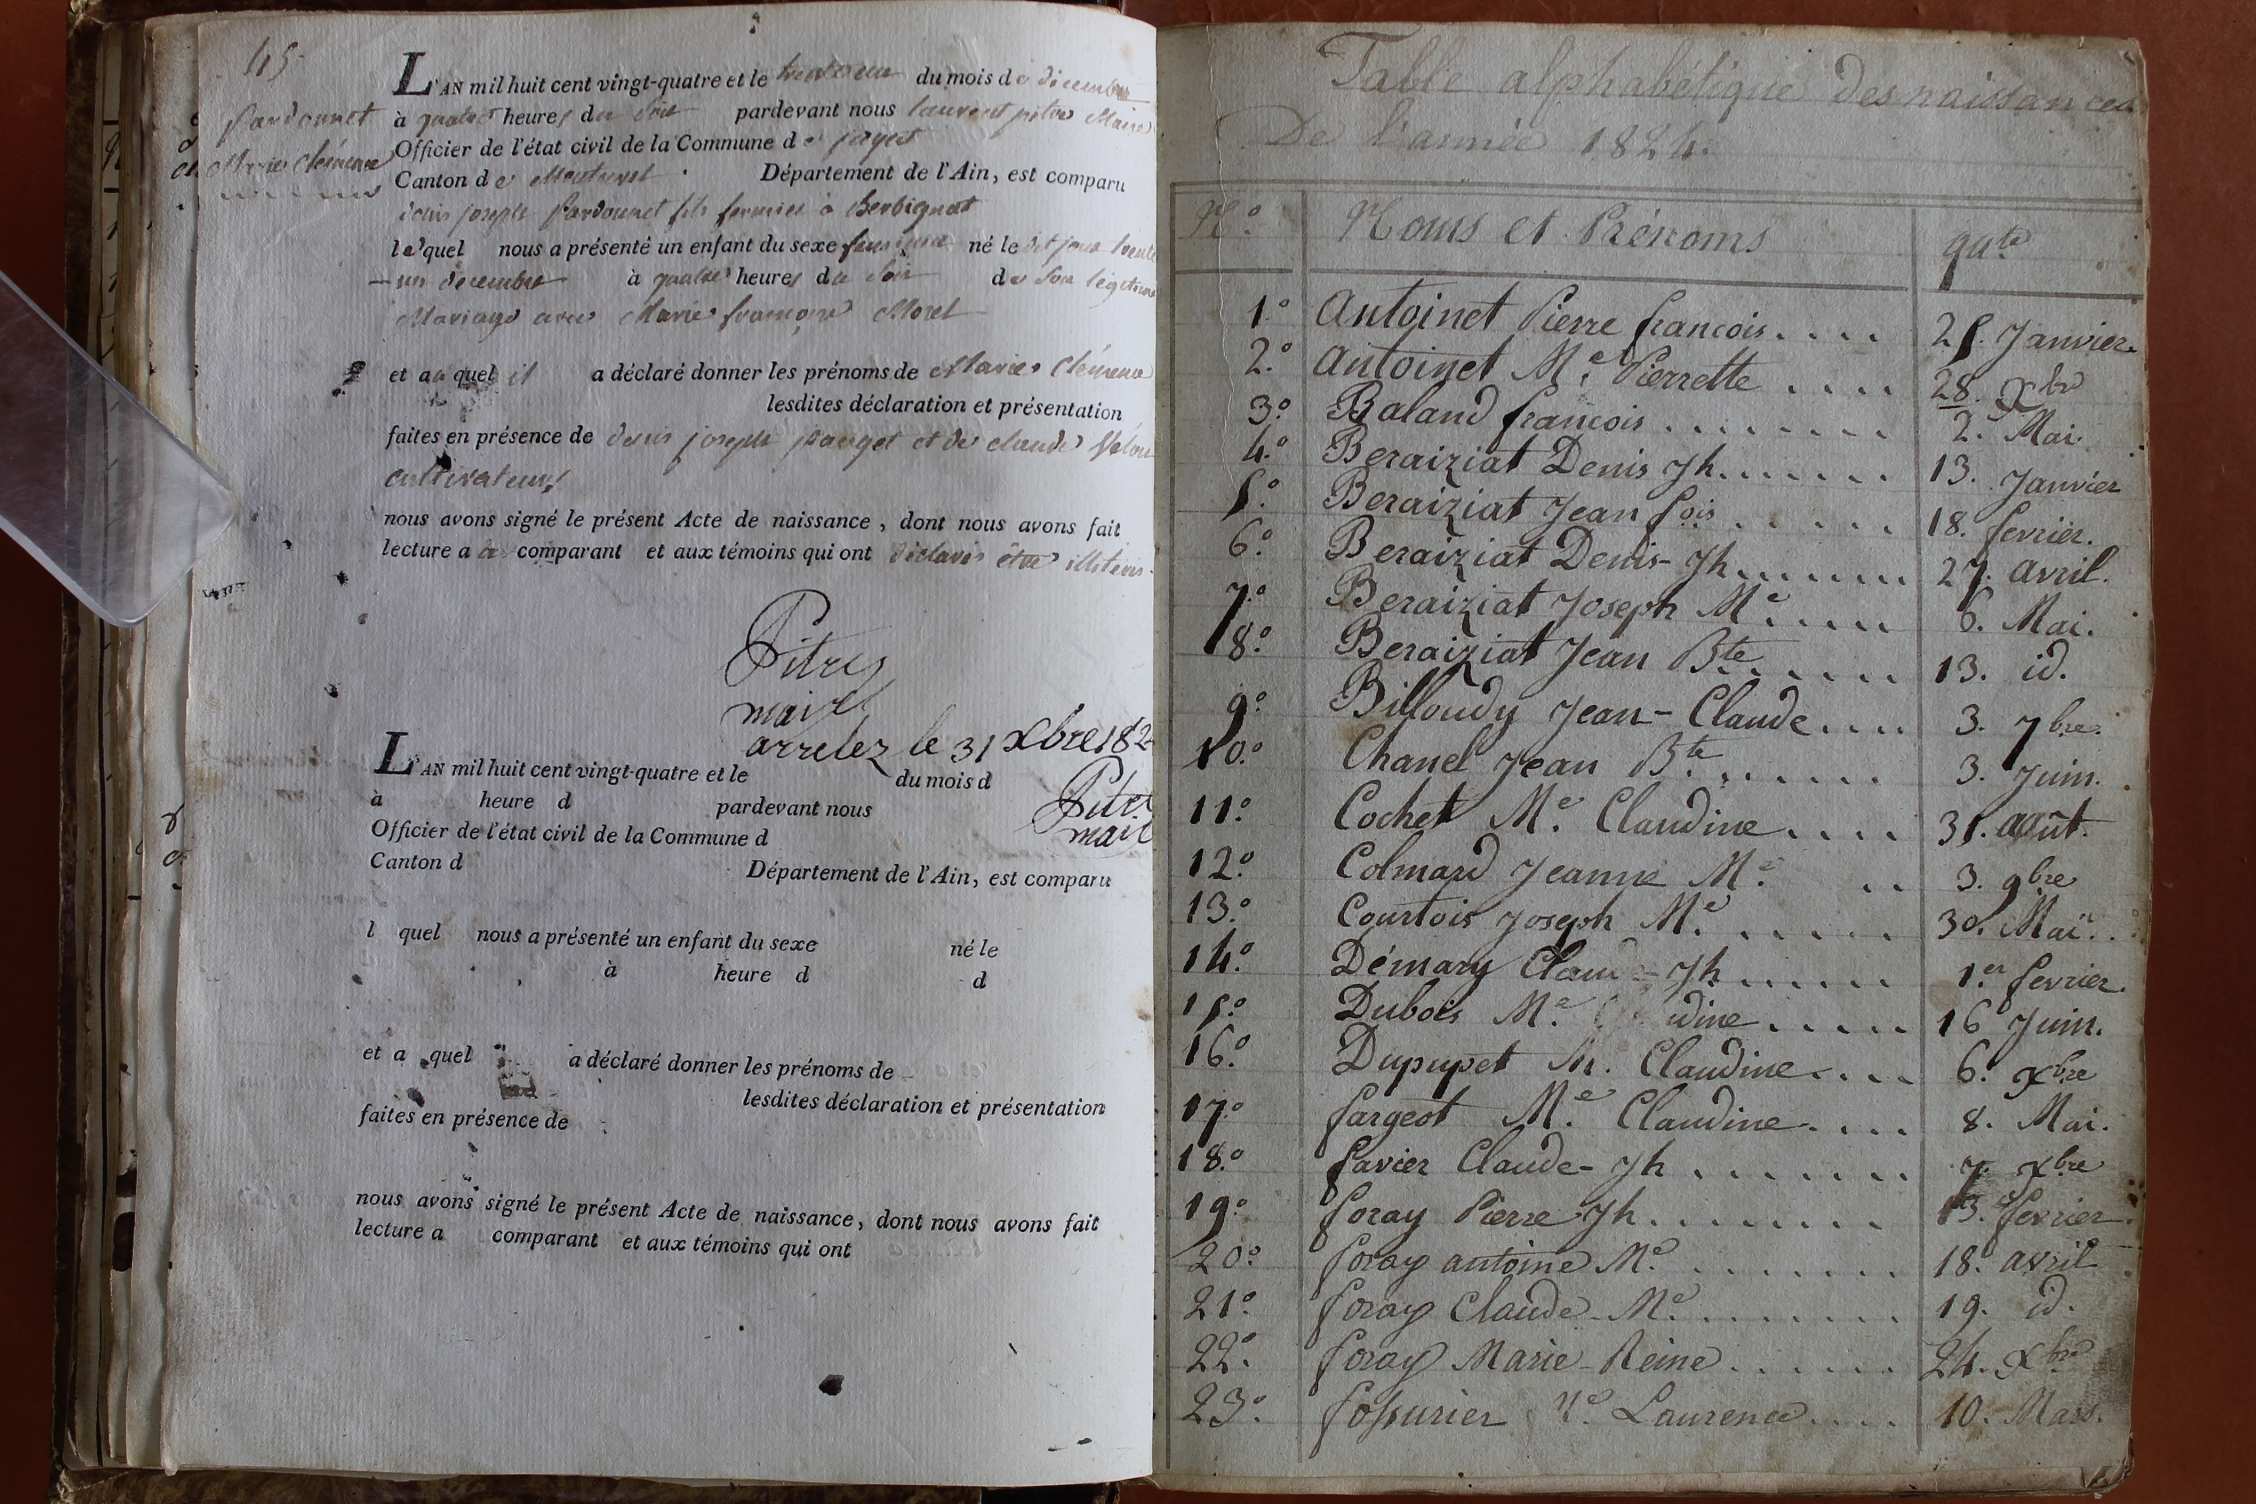 45.
Pardonnet
Marie Clémence
L'AN mil huit cent vingt-quatre et le trente un du mois de décembre
à quatre heures du soir pardevant nous laurent pitre Maire
Officier de l'état civil de la Commune de
Canton de Département de l'Ain, est comparu
denis joseph Pardonnet fils fermier à
lequel nous a présenté un enfant du sexe feminin né le dit jour trente
un decembre à quatre heures du soir de son légitime
Mariage avec Marie françoise Morel
et auquel il a déclaré donner les prénoms de Marie Clémence
lesdites déclaration et présentation
faites en présence de denis joseph pauget et de claude
cultivateurs
nous avons signé le présent Acte de naissance, dont nous avons fait
lecture au comparant et aux témoins qui ont déclarés être
Pitre
maire
arretez le 31 xbre 182
Pitre
maire
L'AN mil huit cent vingt-quatre et le du mois d
à heure d pardevant nous
Officier de l'état civil de la Commune d
Canton d Département de l'Ain, est comparu
l quel nous a présenté un enfant du sexe né le
à heure d d
et a quel a déclaré donner les prénoms de
lesdites déclaration et présentation
faites en présence de
nous avons signé le présent Acte de naissance, dont nous avons fait
lecture a comparant et aux témoins qui ont
Table alphabétique des naissances
De l'année 1824.
N.° Noms et Prénoms
1.° Antoinet Pierre françois.... 25. Janvier.
2.° Antoinet M.e Pierrette .... 28. xbre
3.° Baland françois ........ 2. Mai.
4.° Beraiziat Denis Jh....... 13. Janvier
5.° Beraiziat Jean fois ...... 18. fevrier.
6.° Beraiziat Denis-Jh....... 27. avril.
7.° Beraiziat Joseph M.e ..... 6. Mai.
8.° Beraiziat Jean Bte....... 13. id.
9.° Billoudy Jean-Claude.... 3. 7bre.
10.° Chanel Jean Bte........ 3. Juin.
11.° Cochet M.e Claudine.... 31. août.
12.° Colmard Jeanne M.e .. 3. 9bre
13.° Courtois Joseph M.e ...... 30. Mai..
14.° Démary Claude-Jh...... 1.er fevrier.
15.° Dubois M.e Claudine..... 16 Juin.
16.° Dupupet M. Claudine.... 6. xbre
17.° fargeot M.e Claudine.... 8. Mai.
18.° favier Claude-Jh ....... 7. xbre
19.° foray Pierre Jh......... 13. fevrier.
20.° foray antoine M.e ........ 18. avril
21.° foray Claude-M.e ........ 19. id.
22.° foray Marie-Reine ...... 24. xbre
23.° fossurier Laurence.... 10. Mars.